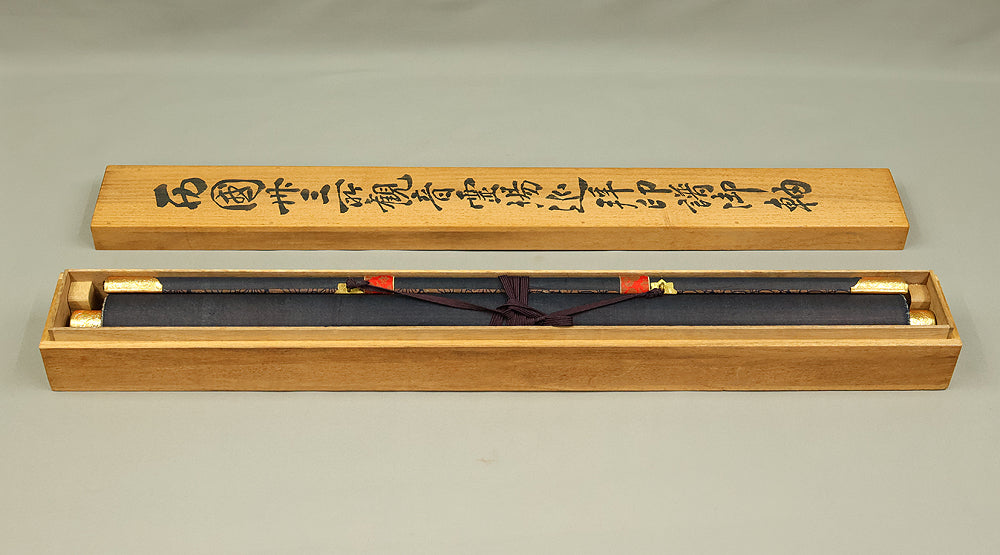 西國卅三所觀音霊場巡拝印譜御軸